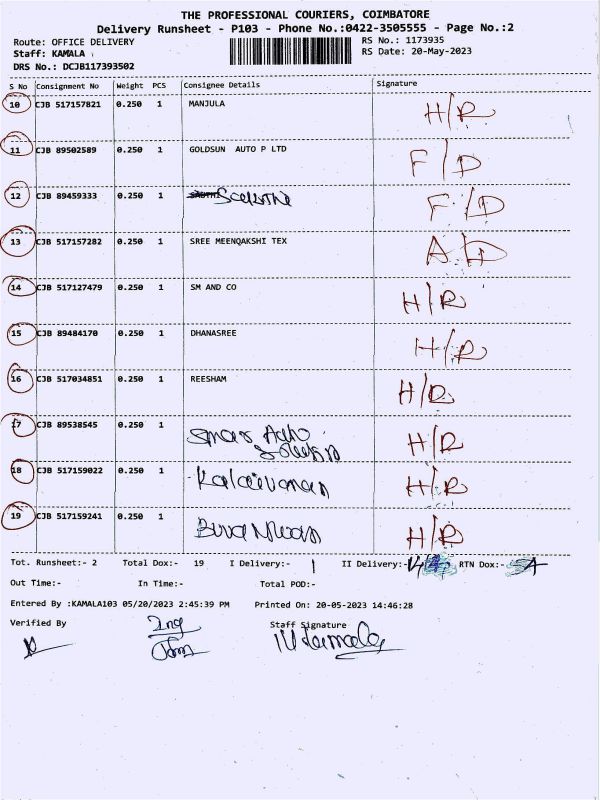 THE PROFESSIONAL COURIERS, COIMBATORE
Delivery Runsheet - P103 - Phone No.:0422-3505555 - Page No.:2
Route: OFFICE DELIVERY RS No.: 1173935
Staff: KAMALA RS Date: 20-May-2023
DRS No.: DCJB117393502
S No Consignment No Weight PCS Consignee Details Signature
10 CJB 517157821 0.250 1 MANJULA H/R
11 CJB 89502589 0.250 1 GOLDSUN AUTO P LTD F/D
12 CJB 89459333 0.250 1 F/D
13 CJB 517157282 0.250 1 SREE MEENQAKSHI TEX A/D
14 CJB 517127479 0.250 1 SM AND CO H/R
15 CJB 89484170 0.250 1 DHANASREE H/R
16 CJB 517034851 0.250 1 REESHAM H/R
17 CJB 89538545 0.250 1 H/R
18 CJB 517159022 0.250 1 Kalaivanan H/R
19 CJB 517159241 0.250 1 H/R
Tot. Runsheet:- 2 Total Dox:- 19 I Delivery:- 1 II Delivery:- RTN Dox:-
Out Time:- In Time:- Total POD:-
Entered By :KAMALA103 05/20/2023 2:45:39 PM Printed On: 20-05-2023 14:46:28
Verified By Staff Signature